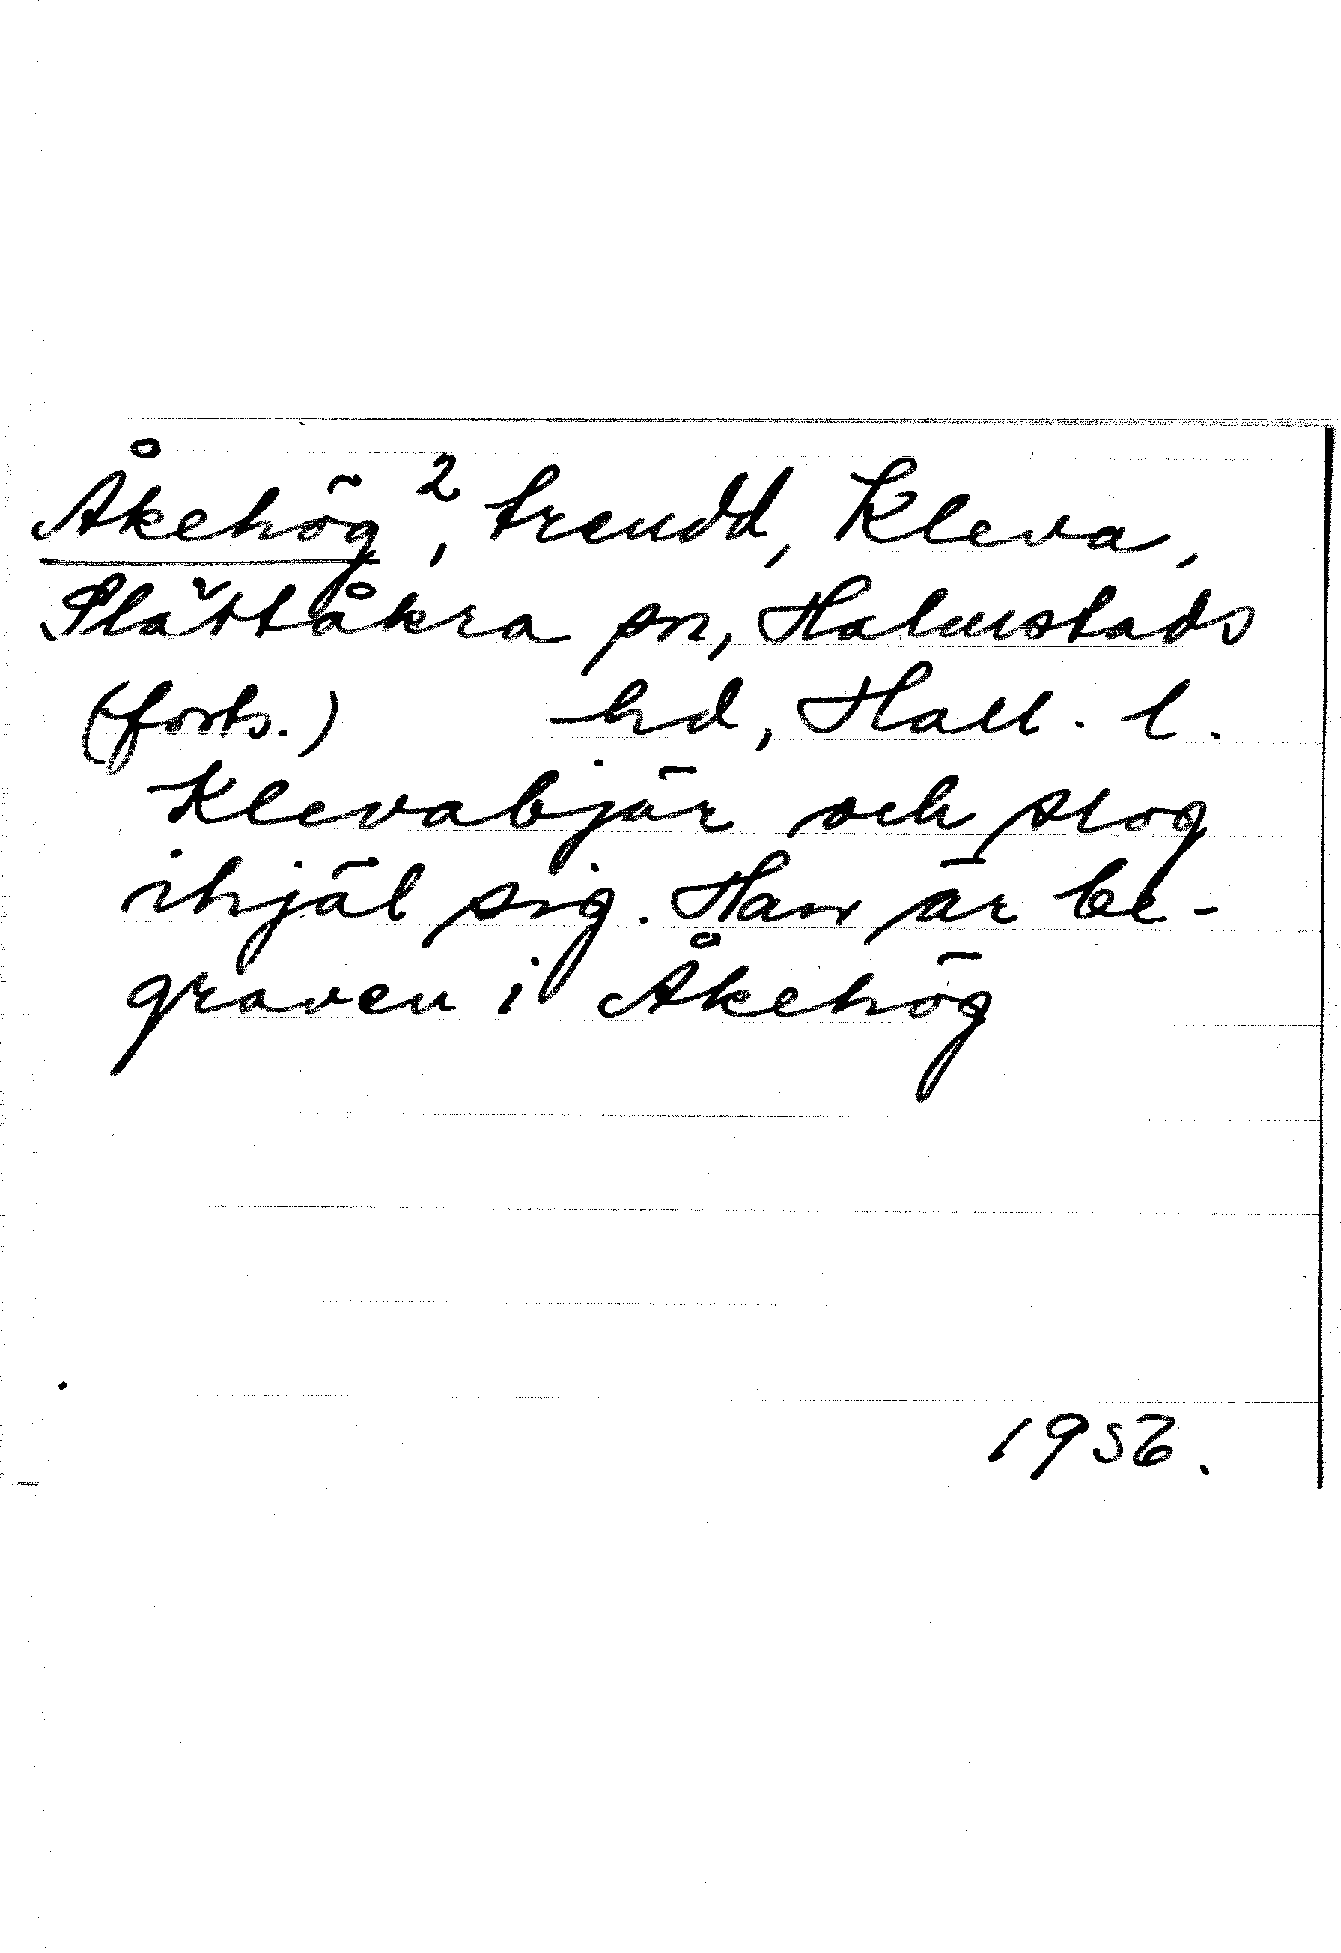 Åkehög², trendd, Kleva,
Slättåkra sn, Halmstads
(forts.) hd, Hall. l.
Klevabjär och slog
ihjäl sig. Han är be-
graven i Åkehög
1956.